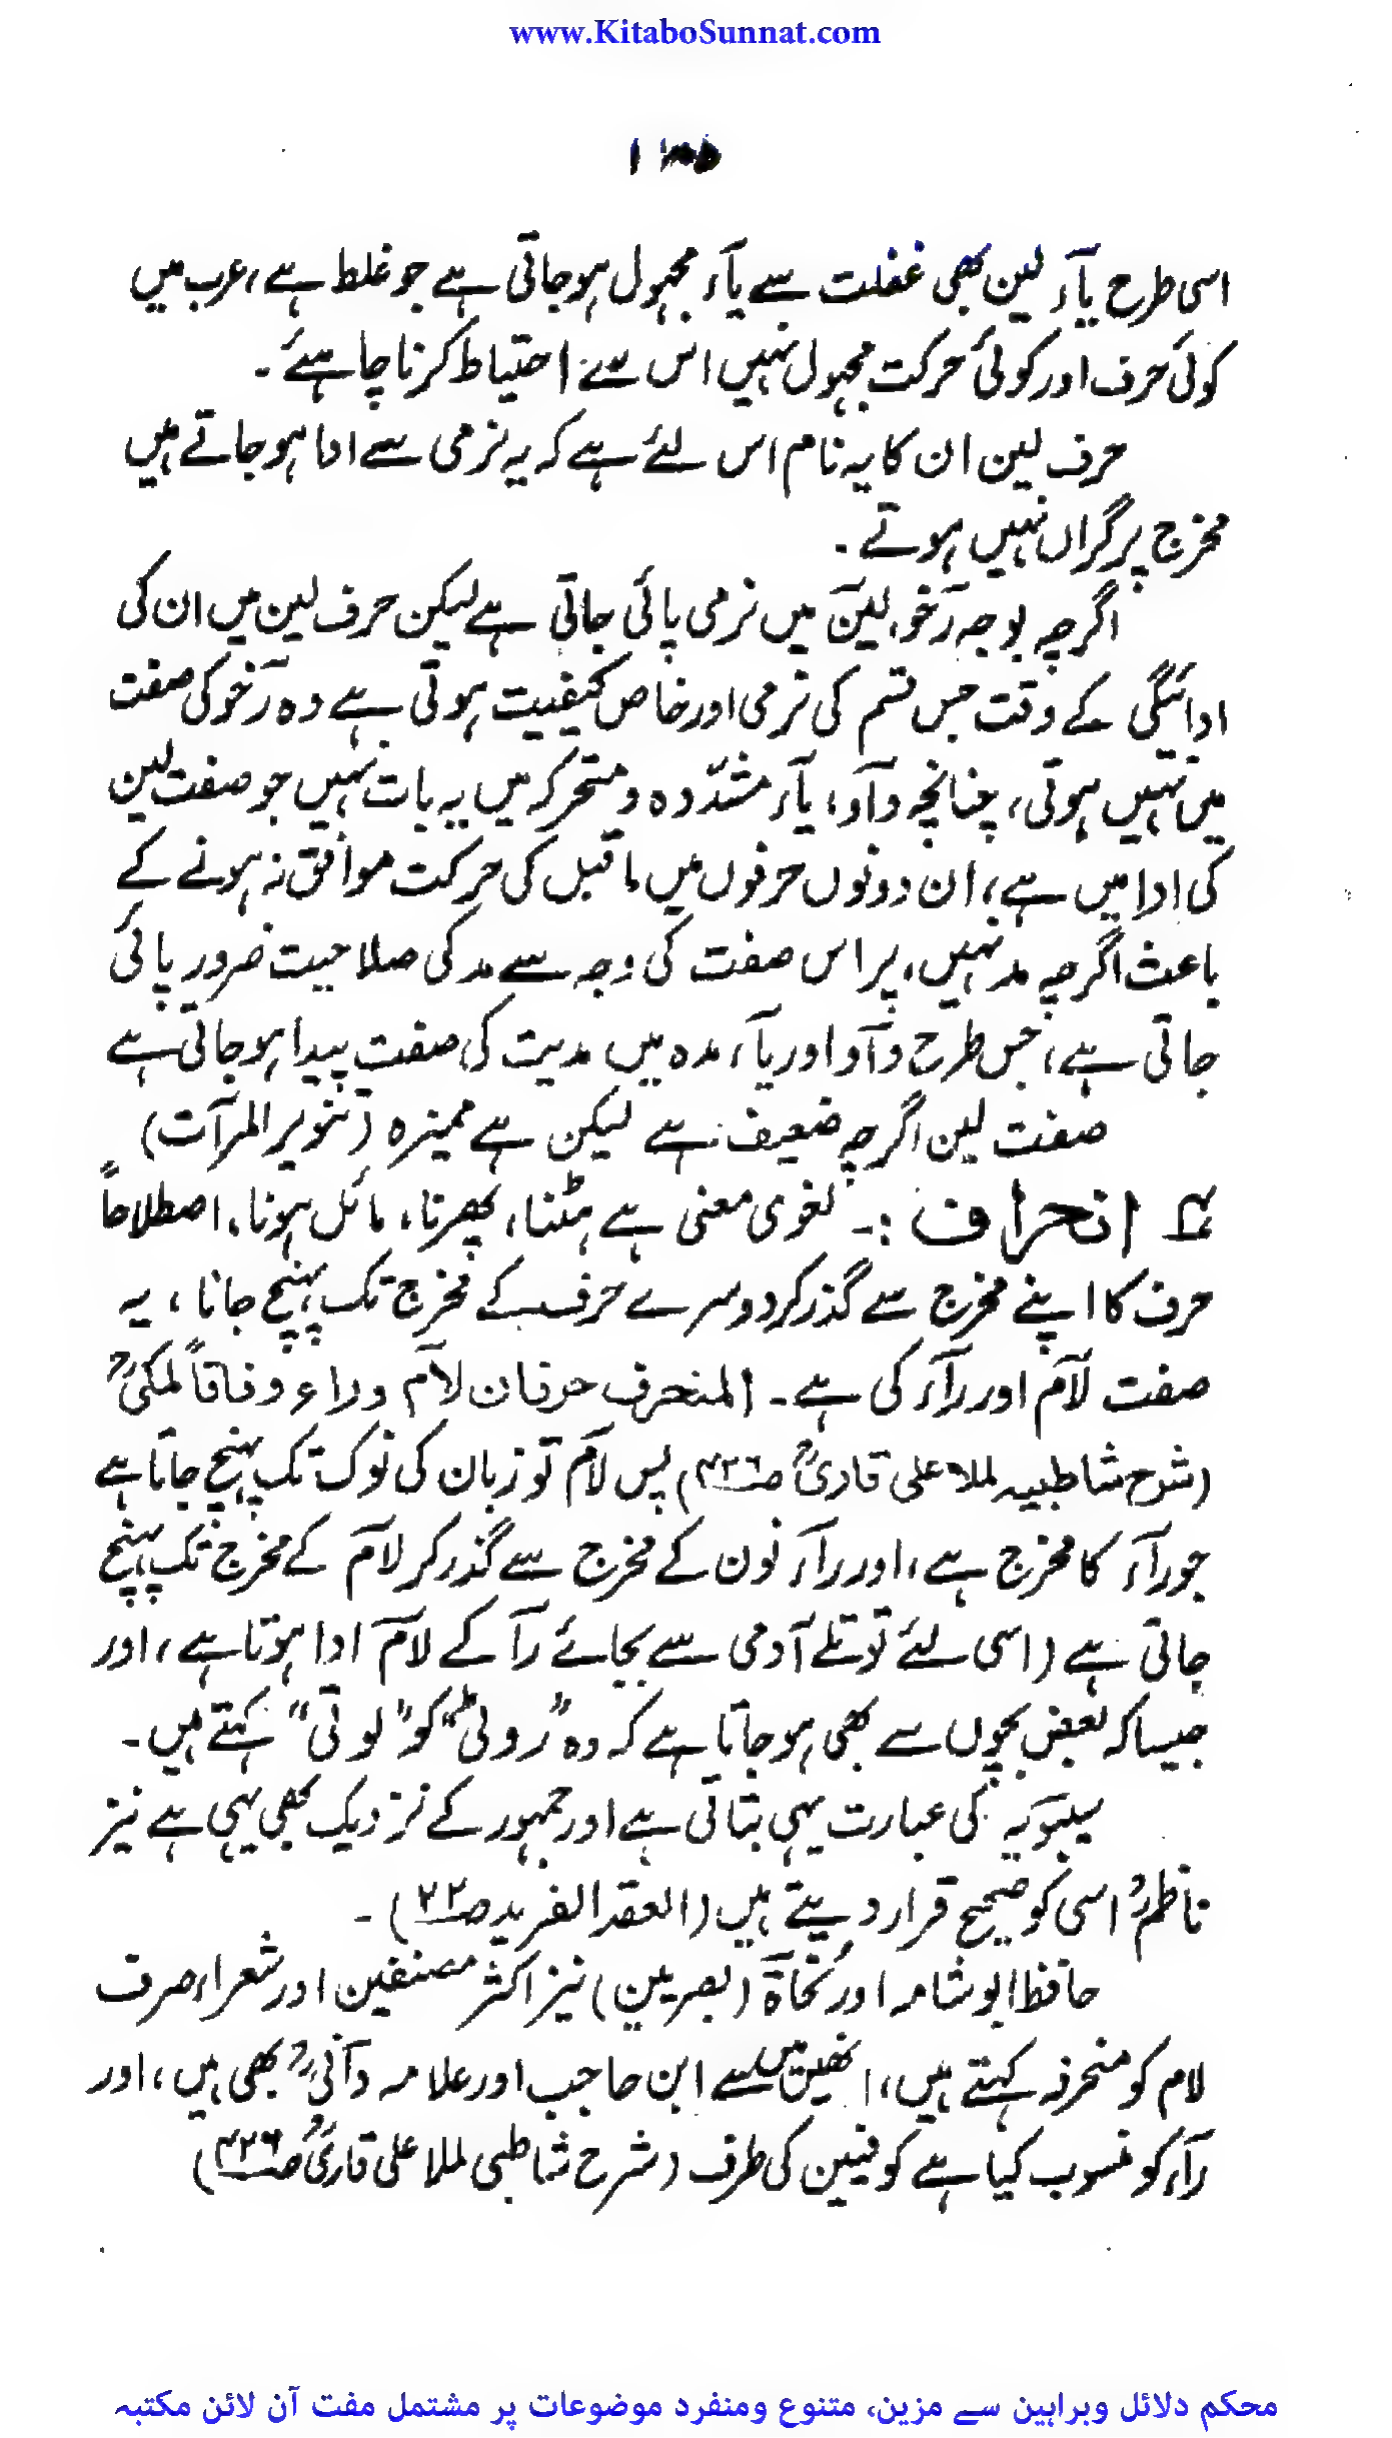 www.KitaboSunnat.com
اسی طرح یآء لین بھی غفلت سے یآء مجہول ہوجاتی ہے جو غلط ہے، عرب میں
کوئی حرف اور کوئی حرکت مجہول نہیں اس سے احتیاط کرنا چاہئے۔
حرف لین ان کا یہ نام اس لئے ہے کہ یہ نرمی سے ادا ہوجاتے ہیں
مخرج پر گراں نہیں ہوتے۔
اگرچہ بوجہ رَخو، لین میں نرمی پائی جاتی ہے لیکن حرف لین میں ان کی
ادائیگی کے وقت جس قسم کی نرمی اور خاص کیفیت ہوتی ہے وہ رَخو کی صفت
میں نہیں ہوتی، چنانچہ وآو، یآء مشدّدہ و متحرکہ میں یہ بات نہیں جو صفت لین
کی ادا میں ہے، ان دونوں حرفوں میں ماقبل کی حرکت موافق نہ ہونے کے
باعث اگرچہ مد نہیں، پر اس صفت کی وجہ سے مد کی صلاحیت ضرور پائی
جاتی ہے، جس طرح وآو اور یآء مدہ میں مدیت کی صفت پیدا ہوجاتی ہے
صفت لین اگرچہ ضعیف ہے لیکن ہے ممیزہ (تنویر المرآت)
۴ انحراف :۔ لغوی معنی ہے ہٹنا، پھرنا، مائل ہونا، اصطلاحاً
حرف کا اپنے مخرج سے گذر کر دوسرے حرف کے مخرج تک پہنچ جانا، یہ
صفت لآم اور رآء کی ہے۔ المنحرف حرفان لآم وراء وفاقاً لمکیؒ
(شرح شاطبیہ لملا علی قاریؒ صـ۴۲۶) پس لآم تو زبان کی نوک تک پہنچ جاتا ہے
جو رآء کا مخرج ہے، اور رآء نون کے مخرج سے گذر کر لآم کے مخرج تک پہنچ
جاتی ہے (اسی لئے توتلے آدمی سے بجائے رآ کے لآم ادا ہوتا ہے، اور
جیسا کہ بعض بچوں سے بھی ہوجاتا ہے کہ وہ "روٹی" کو "لوتی" کہتے ہیں۔
سیبَویہ کی عبارت یہی بتاتی ہے اور جمہور کے نزدیک بھی یہی ہے نیز
ناظمؒ اسی کو صحیح قرار دیتے ہیں (العقد الفرید صـ۲۲)۔
حافظ ابو شامہ اور نُحاۃ (بصریین) نیز اکثر مصنفین اور شعراء صرف
لام کو منحرفہ کہتے ہیں، انھیں میں سے ابن حاجب اور علامہ دآنیؒ بھی ہیں، اور
رآء کو منسوب کیا ہے کوفیین کی طرف (شرح شاطبی لملا علی قاریؒ صـ۴۲۶)
محکم دلائل وبراہین سے مزین، متنوع ومنفرد موضوعات پر مشتمل مفت آن لائن مکتبہ